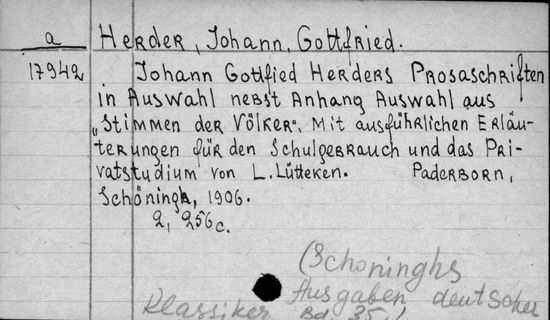 a Herder, Johann, Gottfried.
17942 Johann Gottfied Herders Prosaschriften
in Auswahl nebst Anhang Auswahl aus
„Stimmen der Völker". Mit ausführlichen Erläu-
terungen für den Schulgebrauch und das Pri-
vatstudium von L. Lütteken. Paderborn,
Schöningh, 1906.
2, 256 c.
(Schoninghs
Ausgaben deutscher
Klassiker Bd. 35.)